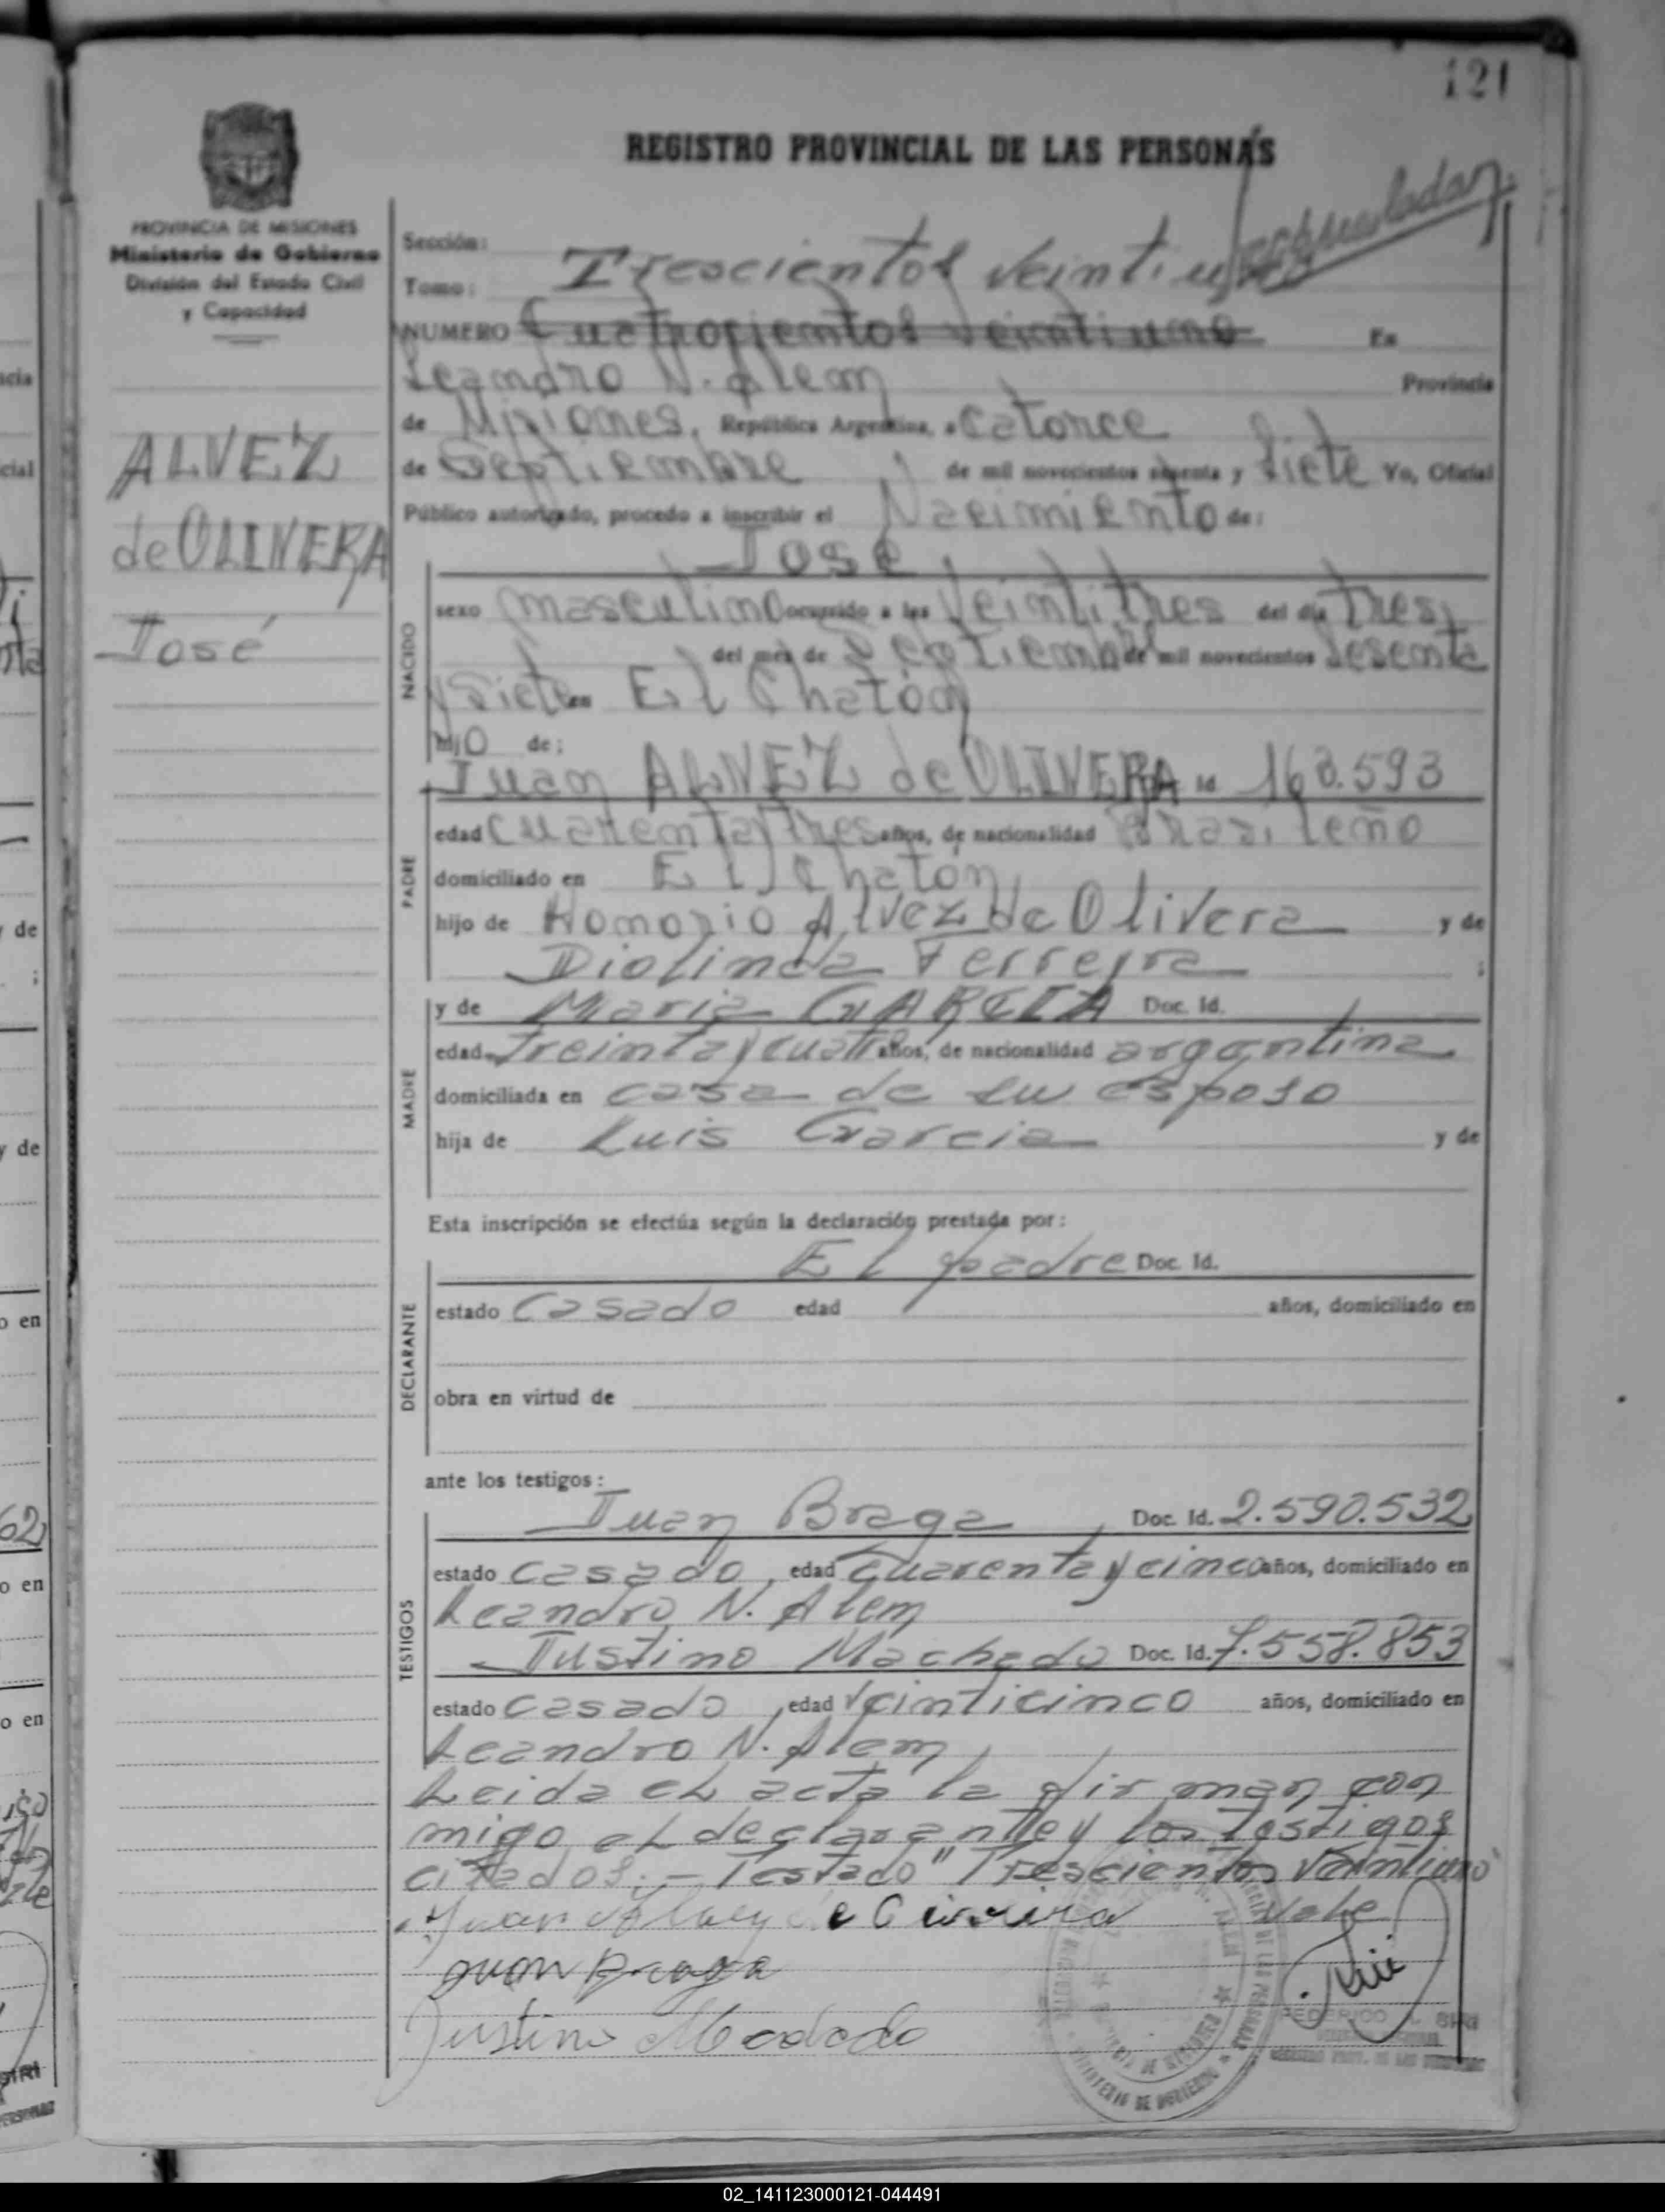 121
REGISTRO PROVINCIAL DE LAS PERSONAS
PROVINCIA DE MISIONES
Ministerio de Gobierno
División del Estado Civil
y Capacidad
Sección:
Tomo: Trescientos veintiuno
NUMERO Cuatrocientos veintiuno En
Leandro N. Alem Provincia
de Misiones, República Argentina, a catorce
de Septiembre de mil novecientos sesenta y siete Yo, Oficial
Público autorizado, procedo a inscribir el Nacimiento de:
ALVEZ
de OLIVERA
José
NACIDO
José
sexo masculino ocurrido a las veintitres del día tres
del mes de Septiembre de mil novecientos sesenta
y siete en El Chatón
hijo de:
PADRE
Juan ALVEZ de OLIVERA Id. 163.593
edad cuarenta y tres años, de nacionalidad Brasileño
domiciliado en El Chatón
hijo de Homorio Alvez de Olivera y de
Diolinda Ferreyra ;
MADRE
y de Maria GARCIA Doc. Id.
edad treinta y cuatro años, de nacionalidad argentina
domiciliada en casa de su esposo
hija de Luis Garcia y de
Esta inscripción se efectúa según la declaración prestada por:
DECLARANTE
El padre Doc. Id.
estado casado edad años, domiciliado en
obra en virtud de
ante los testigos:
TESTIGOS
Juan Braga Doc. Id. 2.590.532
estado casado, edad cuarenta y cinco años, domiciliado en
Leandro N. Alem
Justino Machado Doc. Id. 7.558.853
estado casado, edad veinticinco años, domiciliado en
Leandro N. Alem
Leida el acta la firman con
migo el declarante y los testigos
citados.- Testado "Trescientos veintiuno"
Vale
Juan Alvez de Oliveira
Juan Braga
Justino Machado
MINISTERIO DE GOBIERNO
02_141123000121-044491